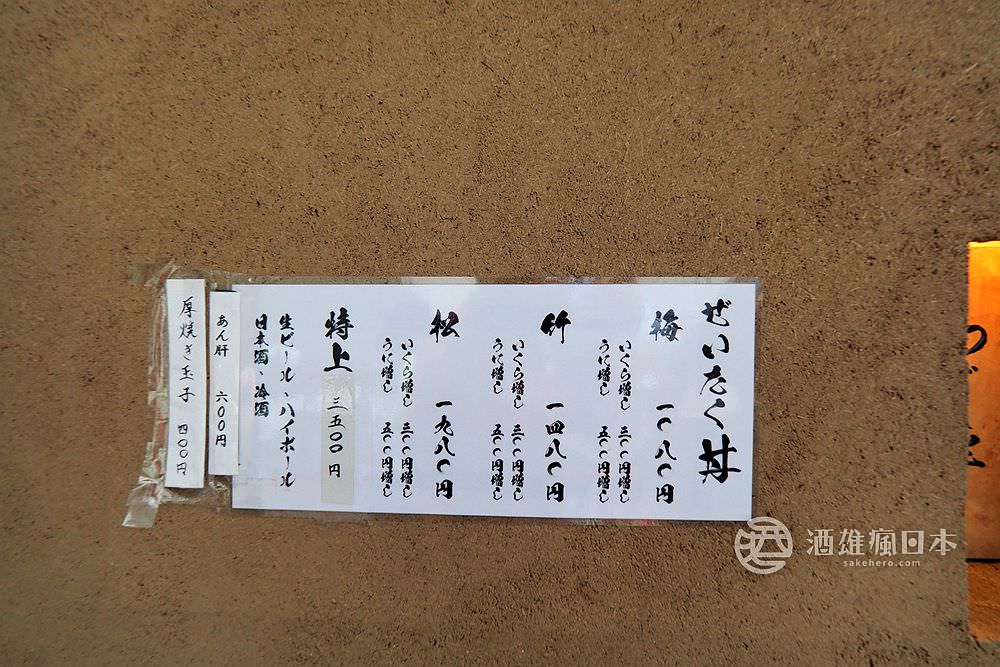 ぜいたく丼
梅 一〇八〇円
いくら増し 三〇〇円増し
うに増し 五〇〇円増し
竹 一四八〇円
いくら増し 三〇〇円増し
うに増し 五〇〇円増し
松 一九八〇円
いくら増し 三〇〇円増し
うに増し 五〇〇円増し
特上 三五〇〇円
生ビール、ハイボール
日本酒、冷酒
あん肝 六〇〇円
厚焼き玉子 四〇〇円
酒雄瘋日本
sakehero.com